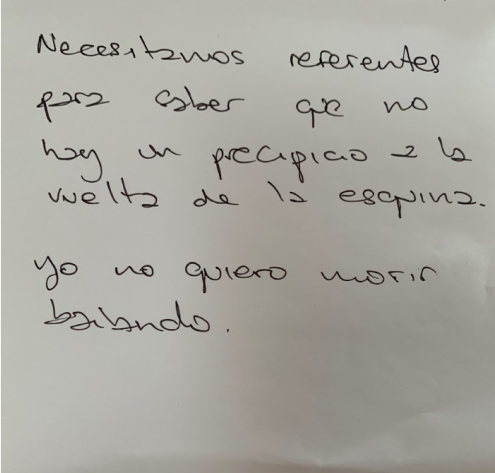 Necesitamos referentes
para saber que no
hay un precipicio a la
vuelta de la esquina.
yo no quiero morir
bailando.